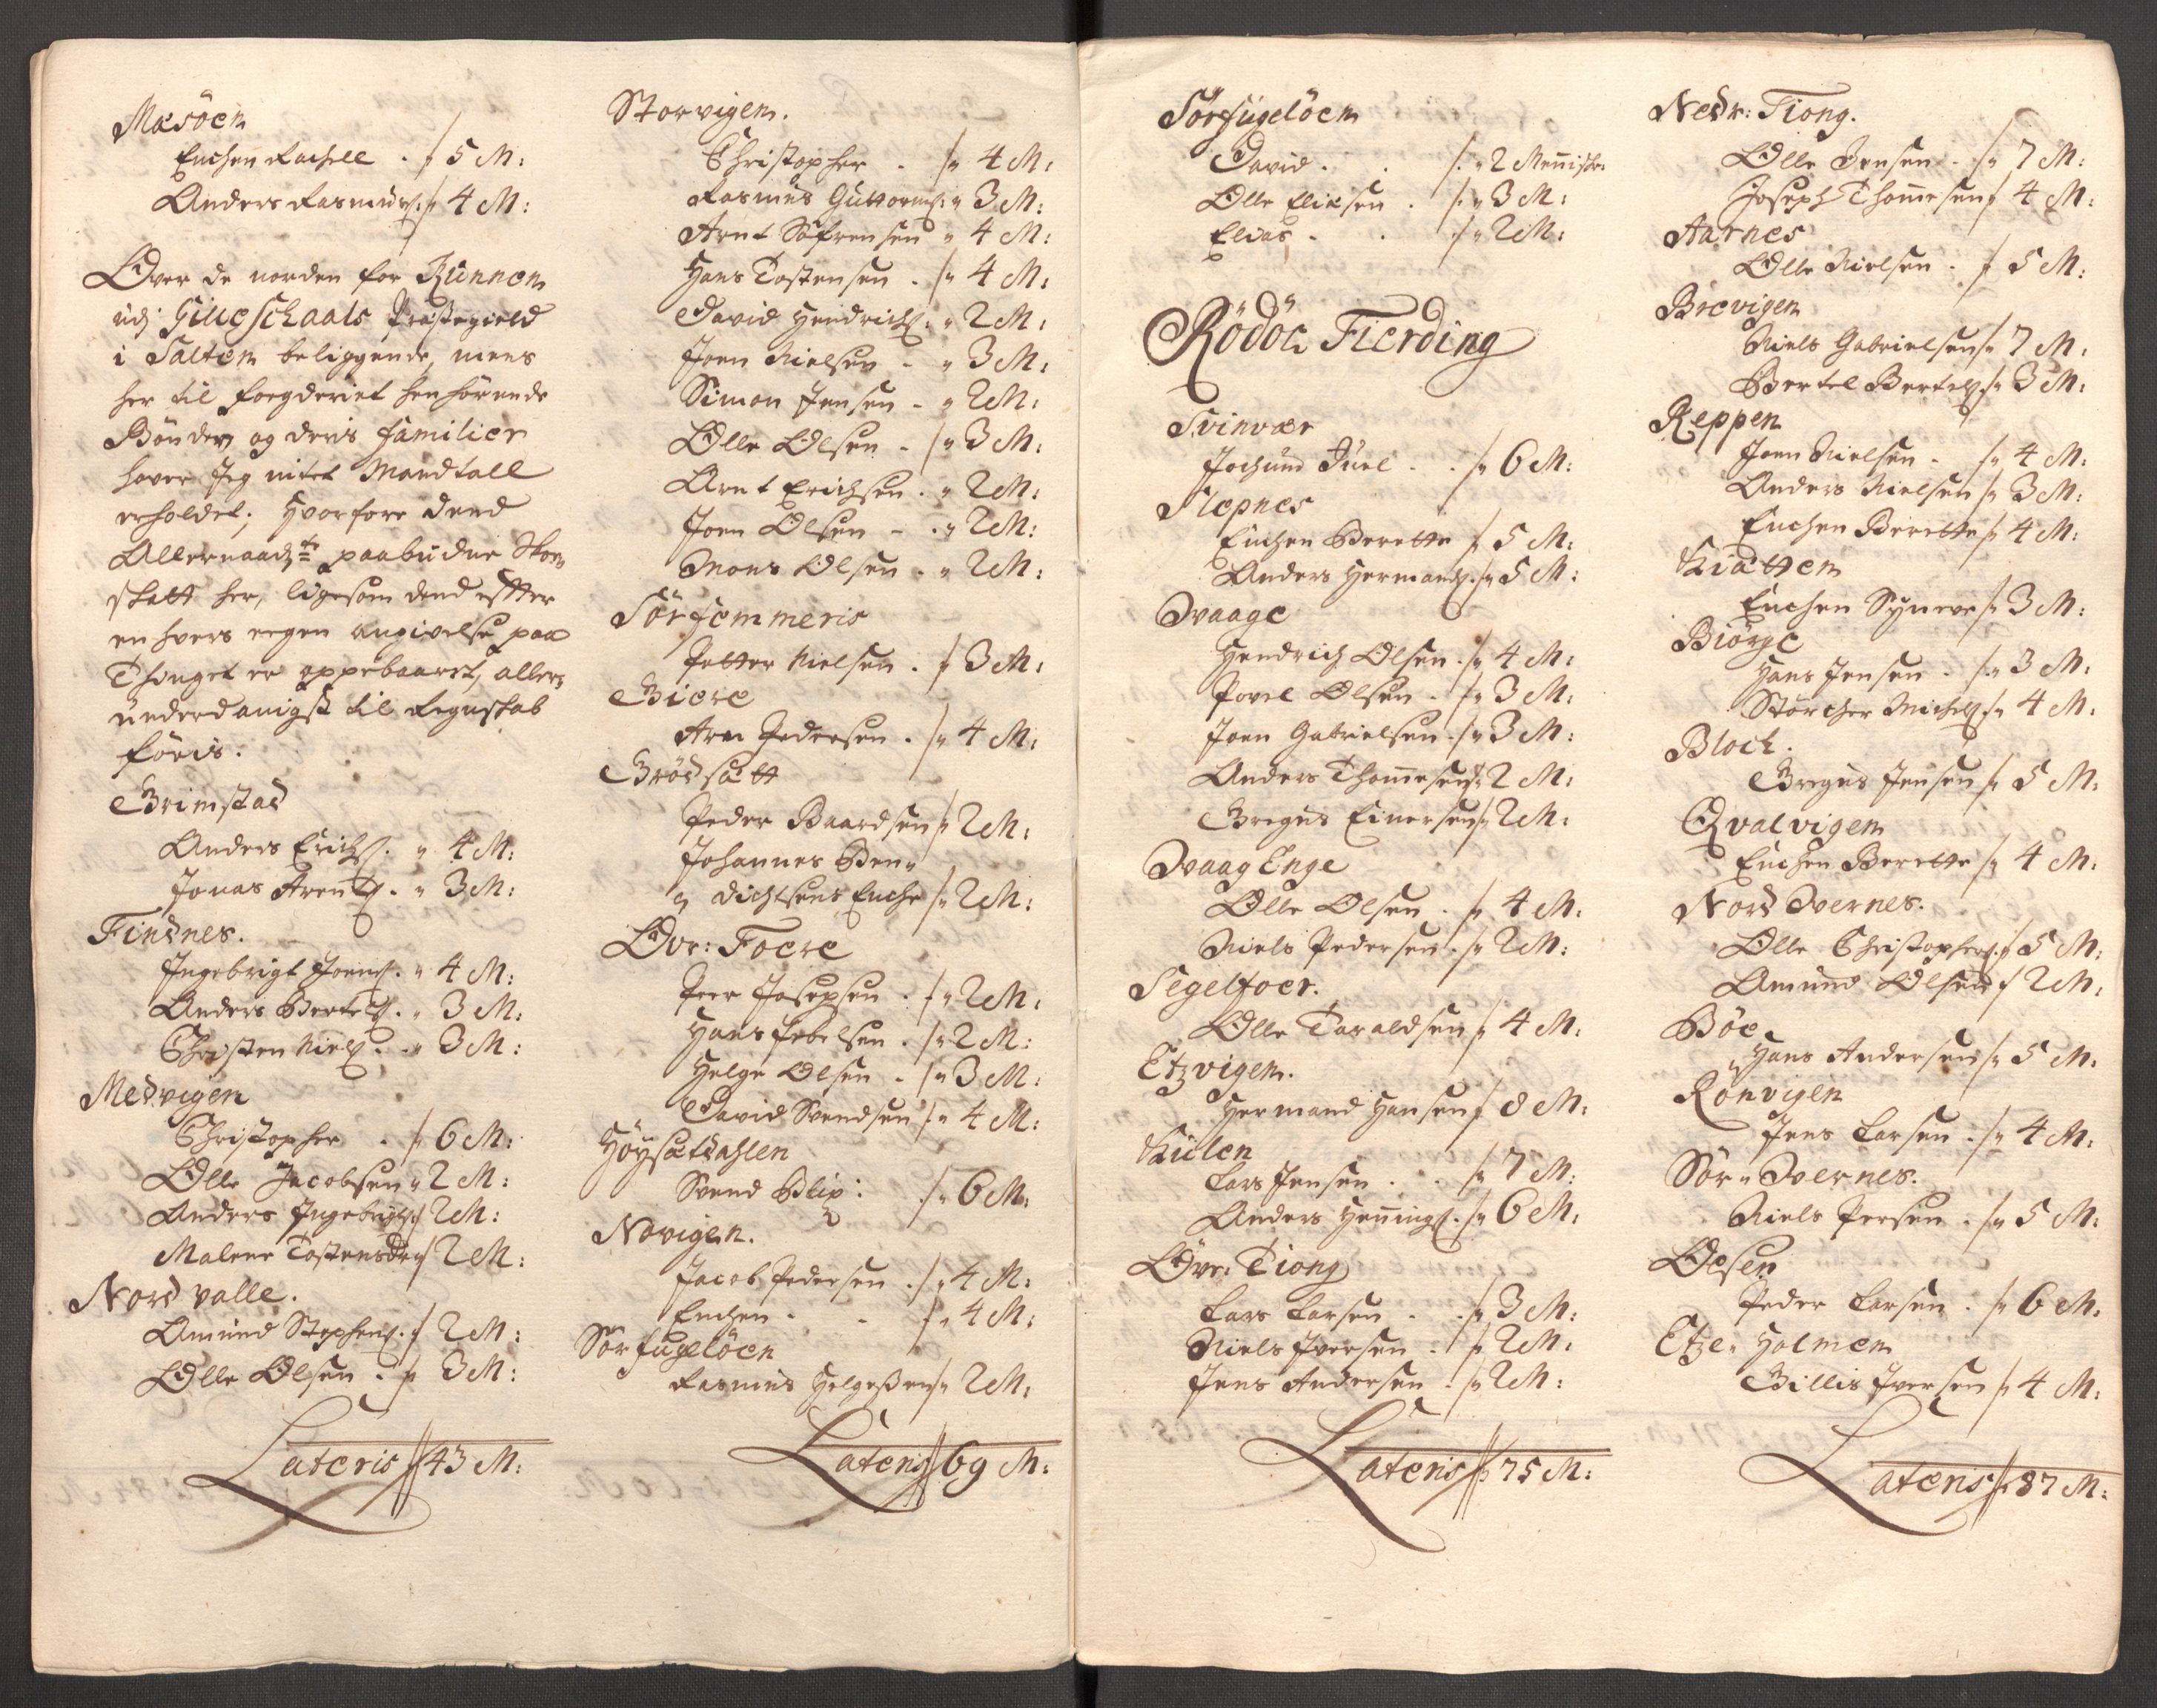 Mæsöen
Enchen Rachell . / 5 M:
Anders Rasmus: / 4 M:
Over de norden for Kunnen
udj Gilleschaals Præstegield
i Salten beliggende, mens
her til fogderiet henhörende
Bönder og deris familier
haver Jeg intet Mandtall
erholdet; Hvorfore dend
Allernaadste paabudne Skoe„
skatt her, ligesom dend efter
en hvers eegen angivelse paa
Thinget er oppebaaret, aller„
underdanigst til Regnskab
föris.
Grimstad
Anders Erichs. „ 4 M:
Jonas Arents. „ 3 M:
Findnes.
Ingebrigt Joens. „ 4 M:
Anders Bertels. „ 3 M:
Christen Niels. „ 3 M:
Medvigen
Christopher . /„ 6 M:
Olle Jacobsen „ 2 M:
Anders Ingebrigts / 2 M:
Malene Tostensdr / 2 M:
Nord valle.
Amund Stephens. / 2 M:
Olle Olsen . /„ 3 M:
Lateris // 43 M:
Storvigen.
Christopher . /„ 4 M:
Rasmus Guttorms: „ 3 M:
Arnt Söfrensen „ 4 M:
Hans Tostensen . /„ 4 M:
David Hendrichs: „ 2 M:
Joen Nielsen - „ 3 M:
Simon Jensen - „ 2 M:
Olle Olsen - /„ 3 M:
Arnt Erichsen . „ 2 M:
Joen Olsen - . „ 2 M:
Mons Olsen . „ 2 M:
Sörfemmeris
Petter Nielsen . / 3 M:
Giere
Arn Pedersen . /„ 4 M:
Brödsætt
Peder Baardsen /„ 2 M:
Johannes Ben„
„ dichtsens Enche /„ 2 M:
Ovr: Foere
Peer Josepsen . /„ 2 M:
Hans Febelsen . /„ 2 M:
Helge Olsen . /„ 3 M:
David Svendsen /„ 4 M:
Höysætdahlen
Svend Blix: . /„ 6 M:
Novigen.
Jacob Pedersen . /„ 4 M:
Enchen . - /„ 4 M:
Sörfugelöen
Rasmus Helgesen /„ 2 M:
Lateris // 69 M:
Sörfugelöen
David . . /.„ 2 Mennisker
Olle Eliesen . /.„ 3 M:
Elias . . /„ 2 M:
Rödöe Fierding
Svinvær
Jochum Juel . . /„ 6 M:
Slepnes
Enchen Berette / 5 M:
Anders Hermands. /„ 5 M:
Qvaage
Hendrich Olsen . /„ 4 M:
Povel Olsen . /„ 3 M:
Joen Gabrielsen . /„ 3 M:
Anders Thommesen /„ 2 M:
Gregus Einersen /„ 2 M:
Qvaag Enge
Olle Olsen . /„ 4 M:
Niels Pedersen . /„ 2 M:
Segelfoer.
Olle Taraldsen /„ 4 M:
Etzvigen.
Hermand Hansen / 8 M:
Kiilen
Lars Jensen . . /„ 7 M:
Anders Hennings. /„ 6 M:
Övr: Tiong
Lars Larsen . . /„ 3 M:
Niels Iversen . /„ 2 M:
Jens Andersen . /„ 2 M:
Lateris // 75 M:
Nedr: Tiong.
Olle Jensen . /„ 7 M:
Joseph Thommesen / 4 M:
Aarnes
Olle Nielsen . / 5 M:
Brevigen
Niels Gabrielsen /„ 7 M:
Bertel Bertels /„ 3 M:
Reppen
Joen Nielsen . /„ 4 M:
Anders Nielsen /„ 3 M:
Enchen Berette /„ 4 M:
Kiætten
Enchen Synneve /„ 3 M:
Biörge
Hans Jensen . /.„ 3 M:
Störcher Michels /„ 4 M:
Bloch.
Gregus Jensen /„ 5 M:
Qvalvigen
Enchen Berette /„ 4 M:
Nord Qvernes.
Olle Christophers. / 5 M:
Amund Olsen / 2 M:
Böe.
Hans Andersen /„ 5 M:
Rönvigen
Jens Larsen . /„ 4 M:
Sör„ Qvernes.
Niels Persen . /„ 5 M:
Olsen
Peder Larsen . /„ 6 M:
Etze„ Holmen
Billis Iversen /„ 4 M:
Lateris // 87 M: